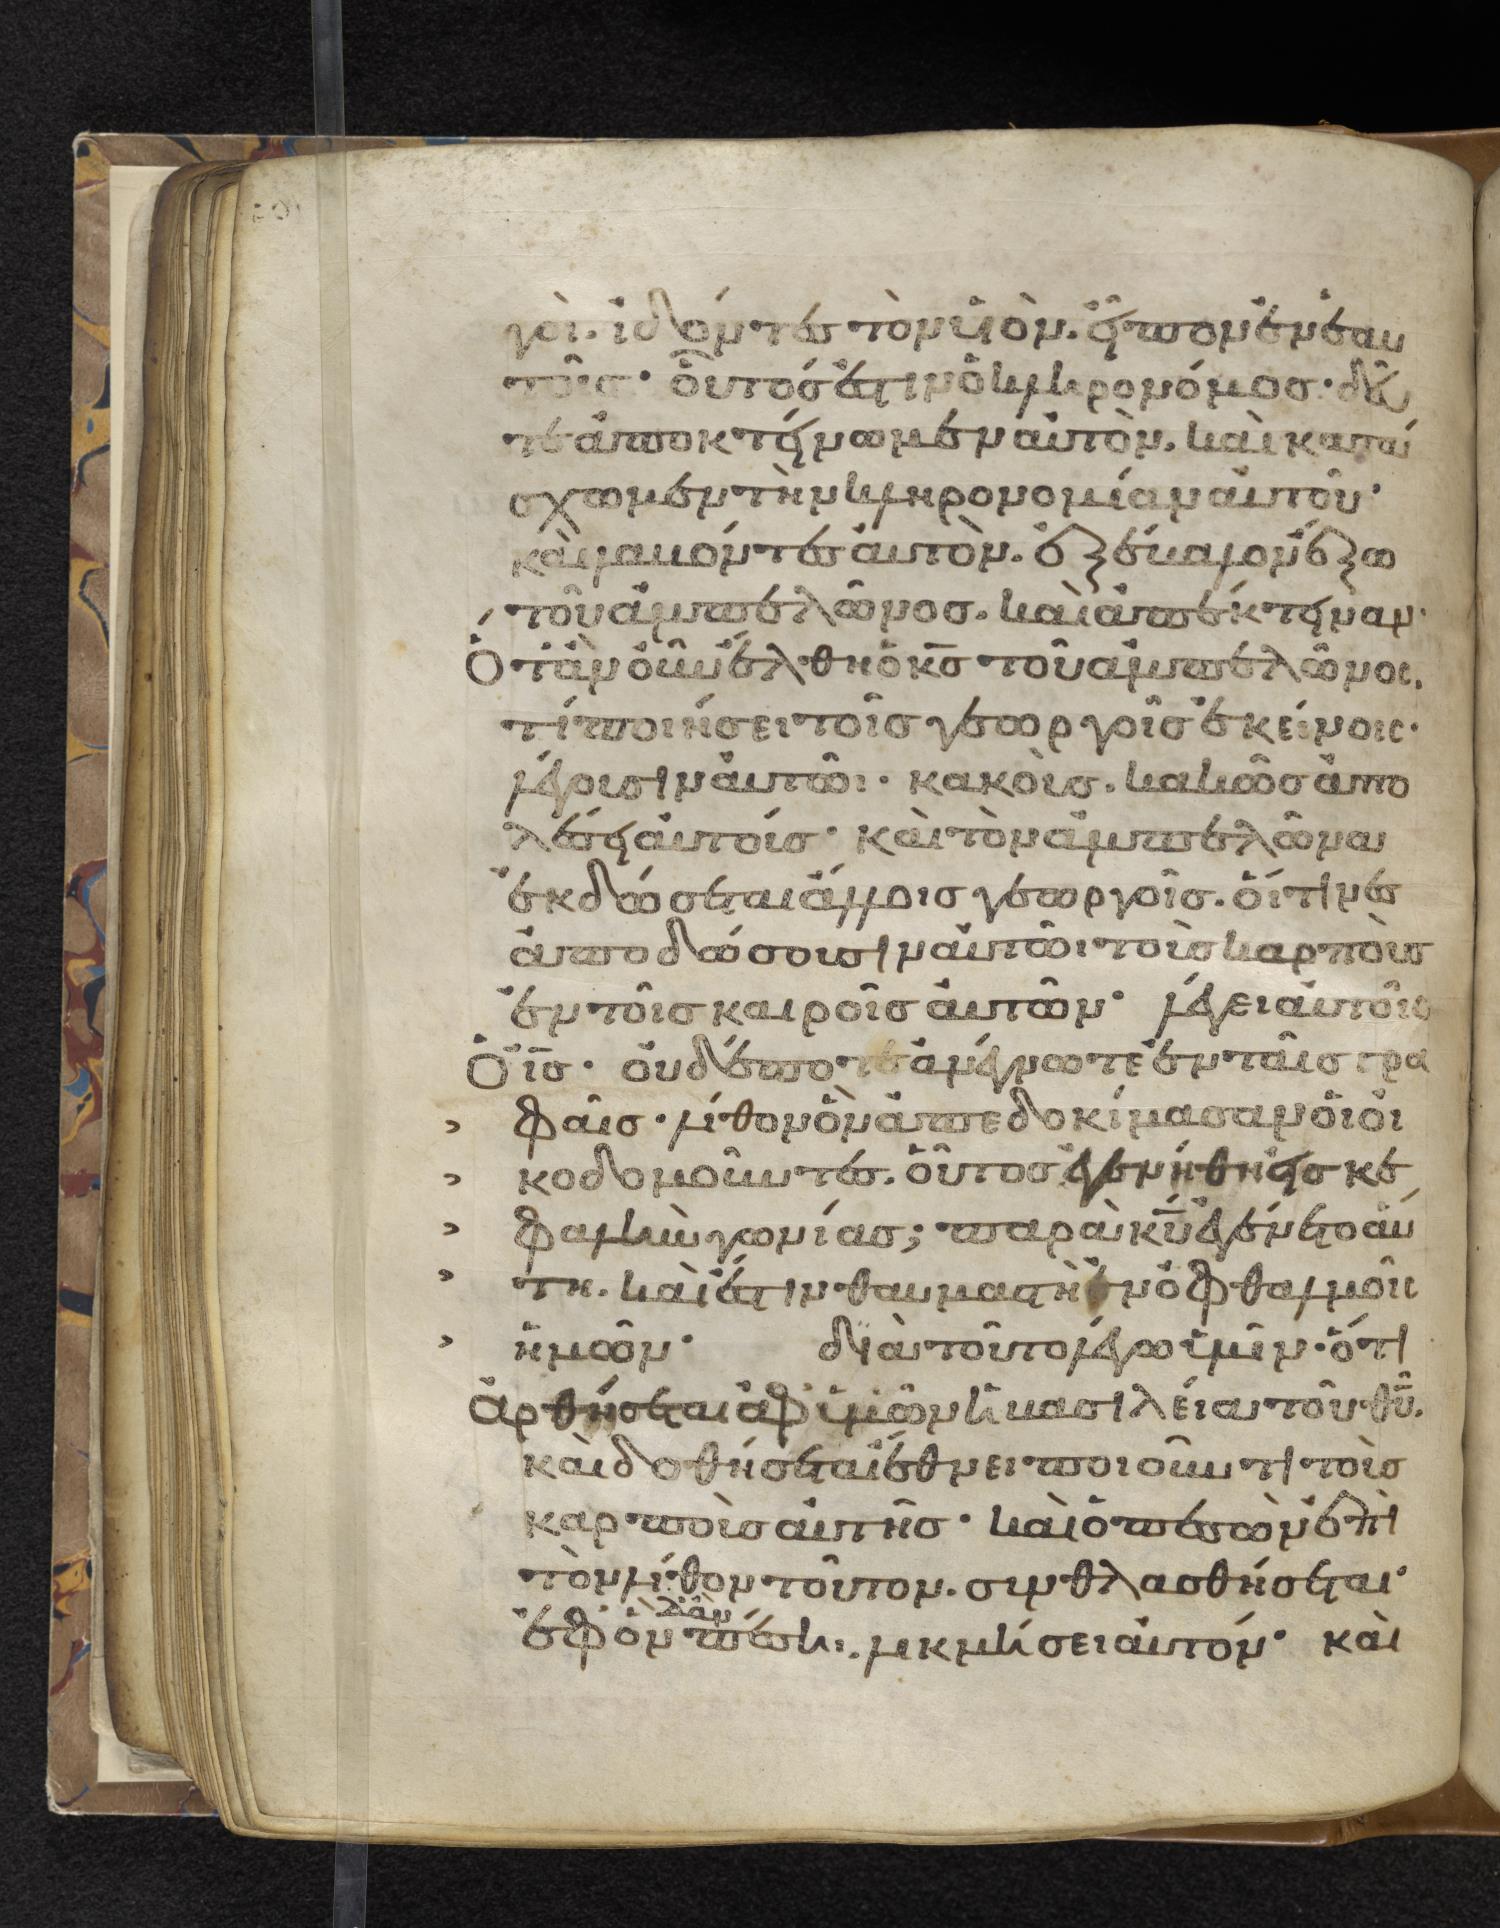 γοὶ. ἰδόντες τὸν υἱὸν. εἶπον ἐν ἑαυ
τοῖς· οὗτός ἐστιν ὁ κληρονόμος· δεῦ
τε ἀποκτείνωμεν αὐτὸν. καὶ κατά
σχωμεν τὴν κληρονομίαν αὐτοῦ·
καὶ λαβόντες αὐτὸν. ἐξέβαλον ἔξω
τοῦ ἀμπελῶνος. καὶ ἀπέκτειναν·
Ὅταν οὖν ἔλθη ὁ κ̅ς̅ τοῦ ἀμπελῶνος.
τί ποιήσει τοῖς γεωργοῖς ἐκείνοις·
λέγουσιν αὐτῶι· κακοὺς. κακῶς ἀπο
λέσει αὐτούς· καὶ τὸν ἀμπελῶνα
ἐκδώσεται ἄλλοις γεωργοῖς. οἵτινες
ἀποδώσουσιν αὐτῶι τοὺς καρποὺς
ἐν τοῖς καιροῖς αὐτῶν· λέγει αὐτοῖς
Ὁ ι̅ς̅· οὐδέποτε ἀνέγνωτε ἐν ταῖς γρα
φαῖς· λίθον ὃν ἀπεδοκίμασαν οἱ οἰ
κοδομοῦντες. οὗτος ἐγενήθη εἰς κε
φαλὴν γωνίας; παρὰ κ̅υ̅ ἐγένετο αὕ
τη. καὶ ἔστιν θαυμαστὴ ἐν ὀφθαλμοῖς
ἡμῶν· διὰ τοῦτο λέγω ὑμῖν· ὅτι
Ἀρθήσεται ἀφ' ὑμῶν ἡ βασιλεία τοῦ θ̅υ̅.
καὶ δοθήσεται ἔθνει ποιοῦντι τοὺς
καρποὺς αὐτῆς· καὶ ὁ πεσὼν ἐπὶ
τὸν λίθον τοῦτον. συνθλασθήσεται·
ἐφ' ὃν δ' ἂν πέση. λικμήσει αὐτόν· καὶ